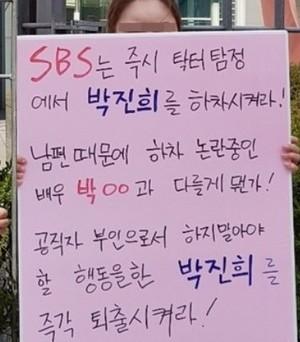 SBS는 즉시 탁터탐정
에서 박진희를 하차시켜라!
남편 때문에 하차 논란중인
배우 박OO과 다를게 뭔가!
공직자 부인으로서 하지말아야
할 행동을한 박진희를
즉각 퇴출시켜라!